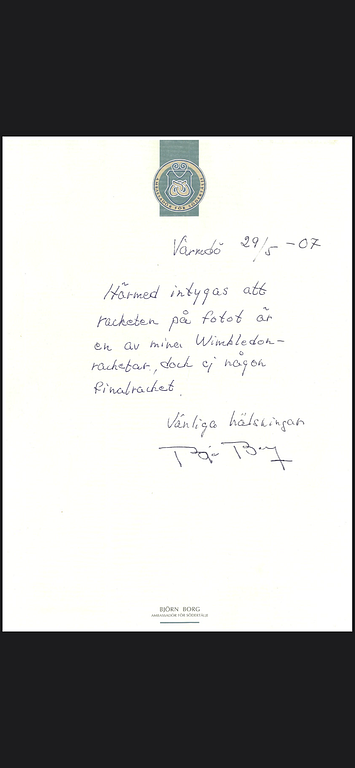 Värmdö 29/5 -07
Härmed intygas att
racketen på fotot är
en av mina Wimbledon-
racketar, dock ej någon
finalracket.
Vänliga hälsningar
Björn Borg
BJÖRN BORG
AMBASSADÖR FÖR SÖDERTÄLJE